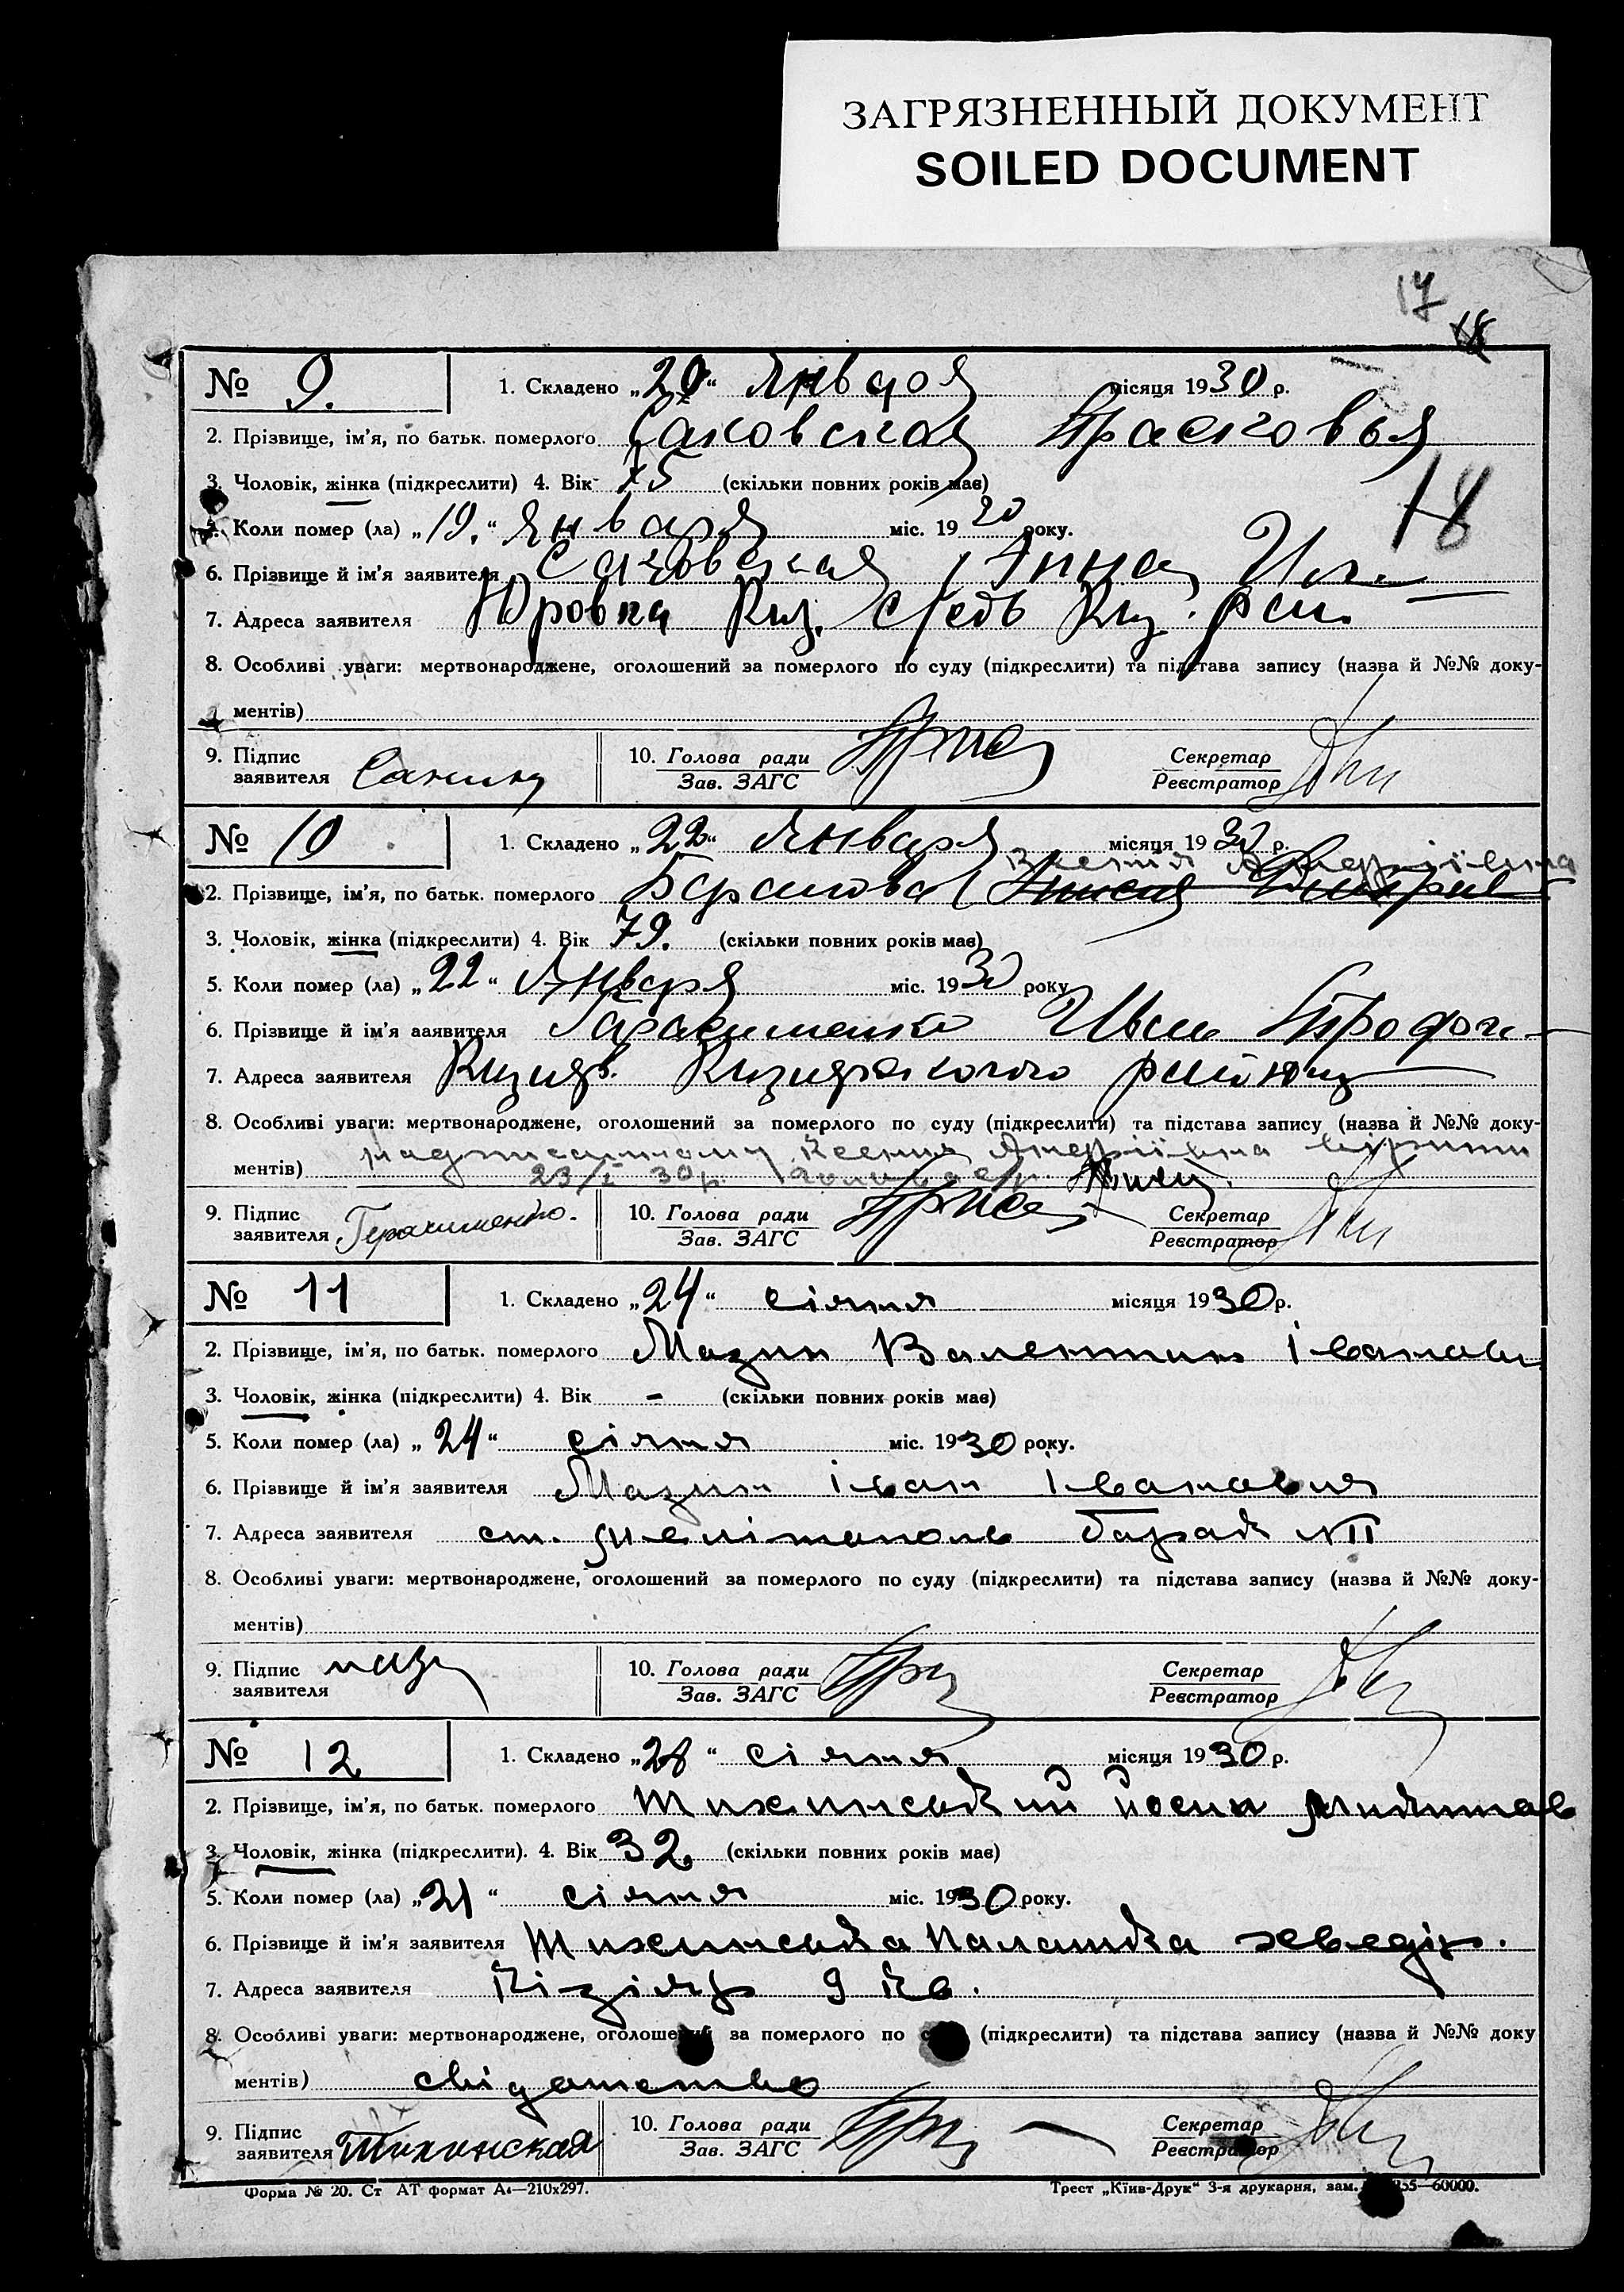 ЗАГРЯЗНЕННЫЙ ДОКУМЕНТ
SOILED DOCUMENT
17
18
№ 9. 1. Складено „20“ Января місяця 1930 р.
2. Прізвище, ім'я, по батьк. померлого Саковская Прасковья
3. Чоловік, жінка (підкреслити) 4. Вік 75 (скільки повних років має)
18
5. Коли помер (ла) „19.“ Января міс. 1930 року.
6. Прізвище й ім'я заявителя Саковская Анна
7. Адреса заявителя Юровка Киз.
8. Особливі уваги: мертвонароджене, оголошений за померлого по суду (підкреслити) та підстава запису (назва й №№ доку-
ментів)
9. Підпис заявителя 10. Голова ради Зав. ЗАГС Секретар Реєстратор
№ 10 1. Складено „22“ Января місяця 1930 р.
2. Прізвище, ім'я, по батьк. померлого Ксенія Андріївна
3. Чоловік, жінка (підкреслити) 4. Вік 79. (скільки повних років має)
5. Коли помер (ла) „22“ Января міс. 1930 року
6. Прізвище й ім'я заявителя Гарасименко Иван
7. Адреса заявителя Кизияр. Кизиярского района
8. Особливі уваги: мертвонароджене, оголошений за померлого по суду (підкреслити) та підстава запису (назва й №№ доку-
ментів) надписаному Ксения Андріївна вірити
23/I 30р.
9. Підпис заявителя Герасименко. 10. Голова ради Зав. ЗАГС Секретар Реєстратор
№ 11 1. Складено „24“ січня місяця 1930 р.
2. Прізвище, ім'я, по батьк. померлого Мазин Валентин Іванович
3. Чоловік, жінка (підкреслити) 4. Вік - (скільки повних років має)
5. Коли помер (ла) „24“ січня міс. 1930 року.
6. Прізвище й ім'я заявителя Мазин Іван Іванович
7. Адреса заявителя ст. Мелітополь барак
8. Особливі уваги: мертвонароджене, оголошений за померлого по суду (підкреслити) та підстава запису (назва й №№ доку-
ментів)
9. Підпис заявителя 10. Голова ради Зав. ЗАГС Секретар Реєстратор
№ 12 1. Складено „28“ січня місяця 1930 р.
2. Прізвище, ім'я, по батьк. померлого Тихинський Йосип
3. Чоловік, жінка (підкреслити). 4. Вік 32 (скільки повних років має)
5. Коли помер (ла) „21“ січня міс. 1930 року.
6. Прізвище й ім'я заявителя Тихинська
7. Адреса заявителя Кізіяр 9 кв.
8. Особливі уваги: мертвонароджене, оголошений за померлого по (підкреслити) та підстава запису (назва й №№ доку
ментів) свідоцтво
9. Підпис заявителя Тихинская 10. Голова ради Зав. ЗАГС Секретар Реєстратор
Форма № 20. Ст АТ формат А4—210х297. Трест „Київ-Друк“ 3-я друкарня, зам. 355—60000.